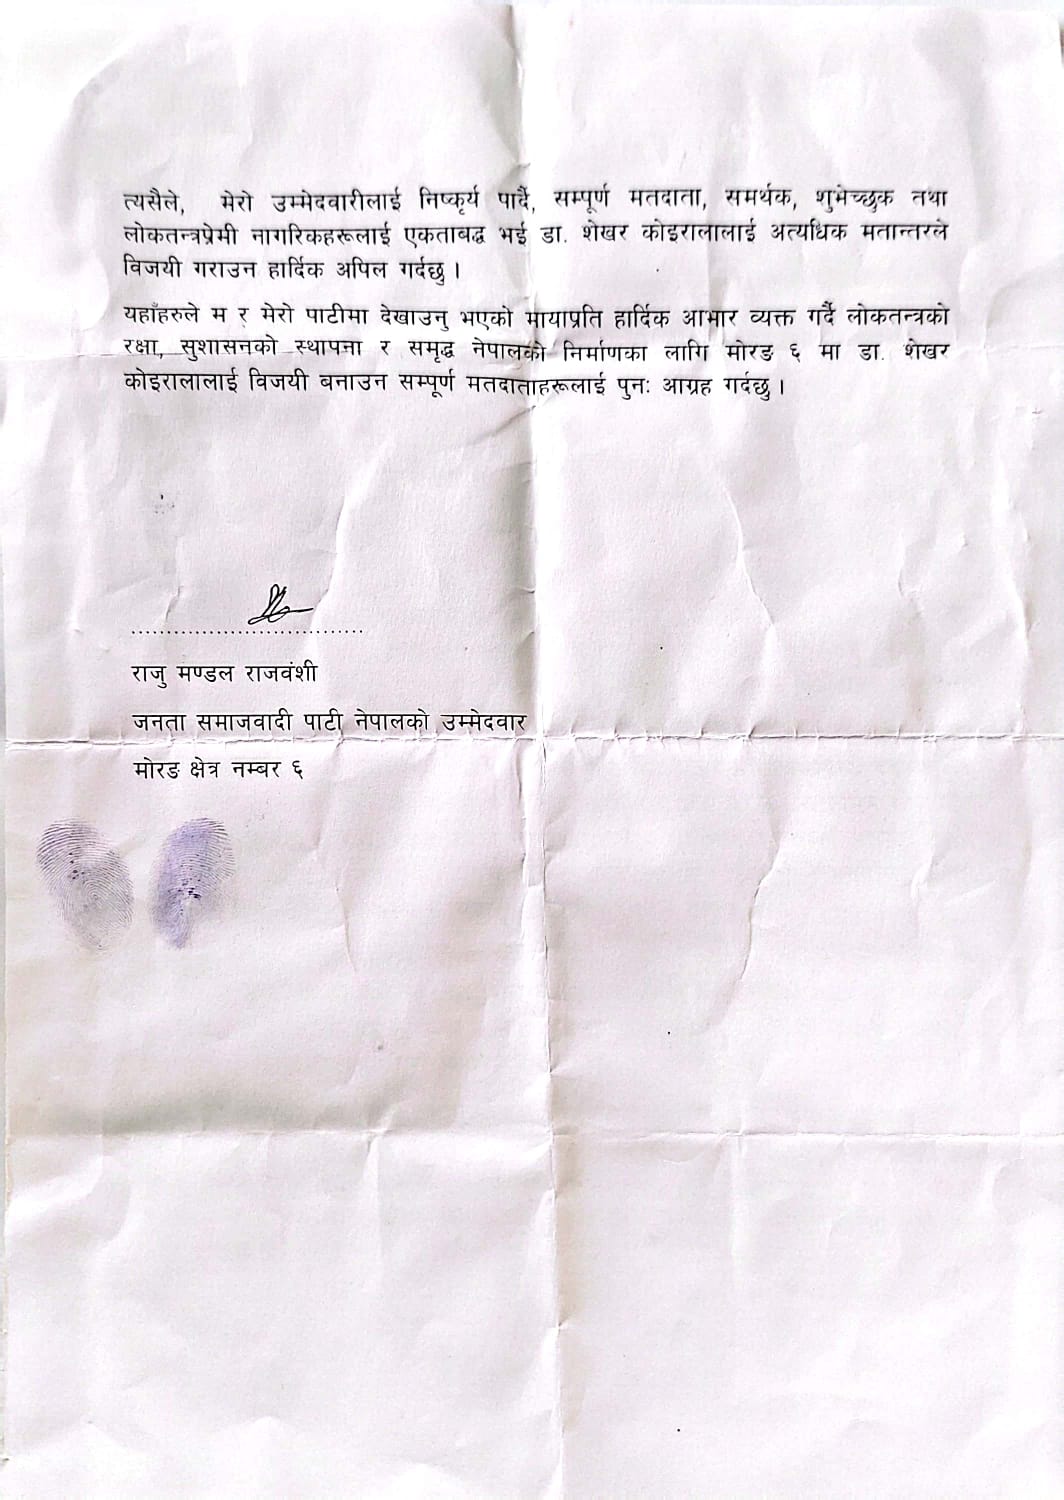 त्यसैले, मेरो उम्मेदवारीलाई निष्कृर्य पार्दै, सम्पूर्ण मतदाता, समर्थक, शुभेच्छुक तथा
लोकतन्त्रप्रेमी नागरिकहरूलाई एकताबद्ध भई डा. शेखर कोइरालालाई अत्यधिक मतान्तरले
विजयी गराउन हार्दिक अपिल गर्दछु ।
यहाँहरुले म र मेरो पाटीमा देखाउनु भएको मायाप्रति हार्दिक आभार व्यक्त गर्दै लोकतन्त्रको
रक्षा, सुशासनको स्थापना र समृद्ध नेपालको निर्माणका लागि मोरङ ६ मा डा. शेखर
कोइरालालाई विजयी बनाउन सम्पूर्ण मतदाताहरूलाई पुनः आग्रह गर्दछु ।
राजु मण्डल राजवंशी
जनता समाजवादी पाटी नेपालको उम्मेदवार
मोरङ क्षेत्र नम्बर ६